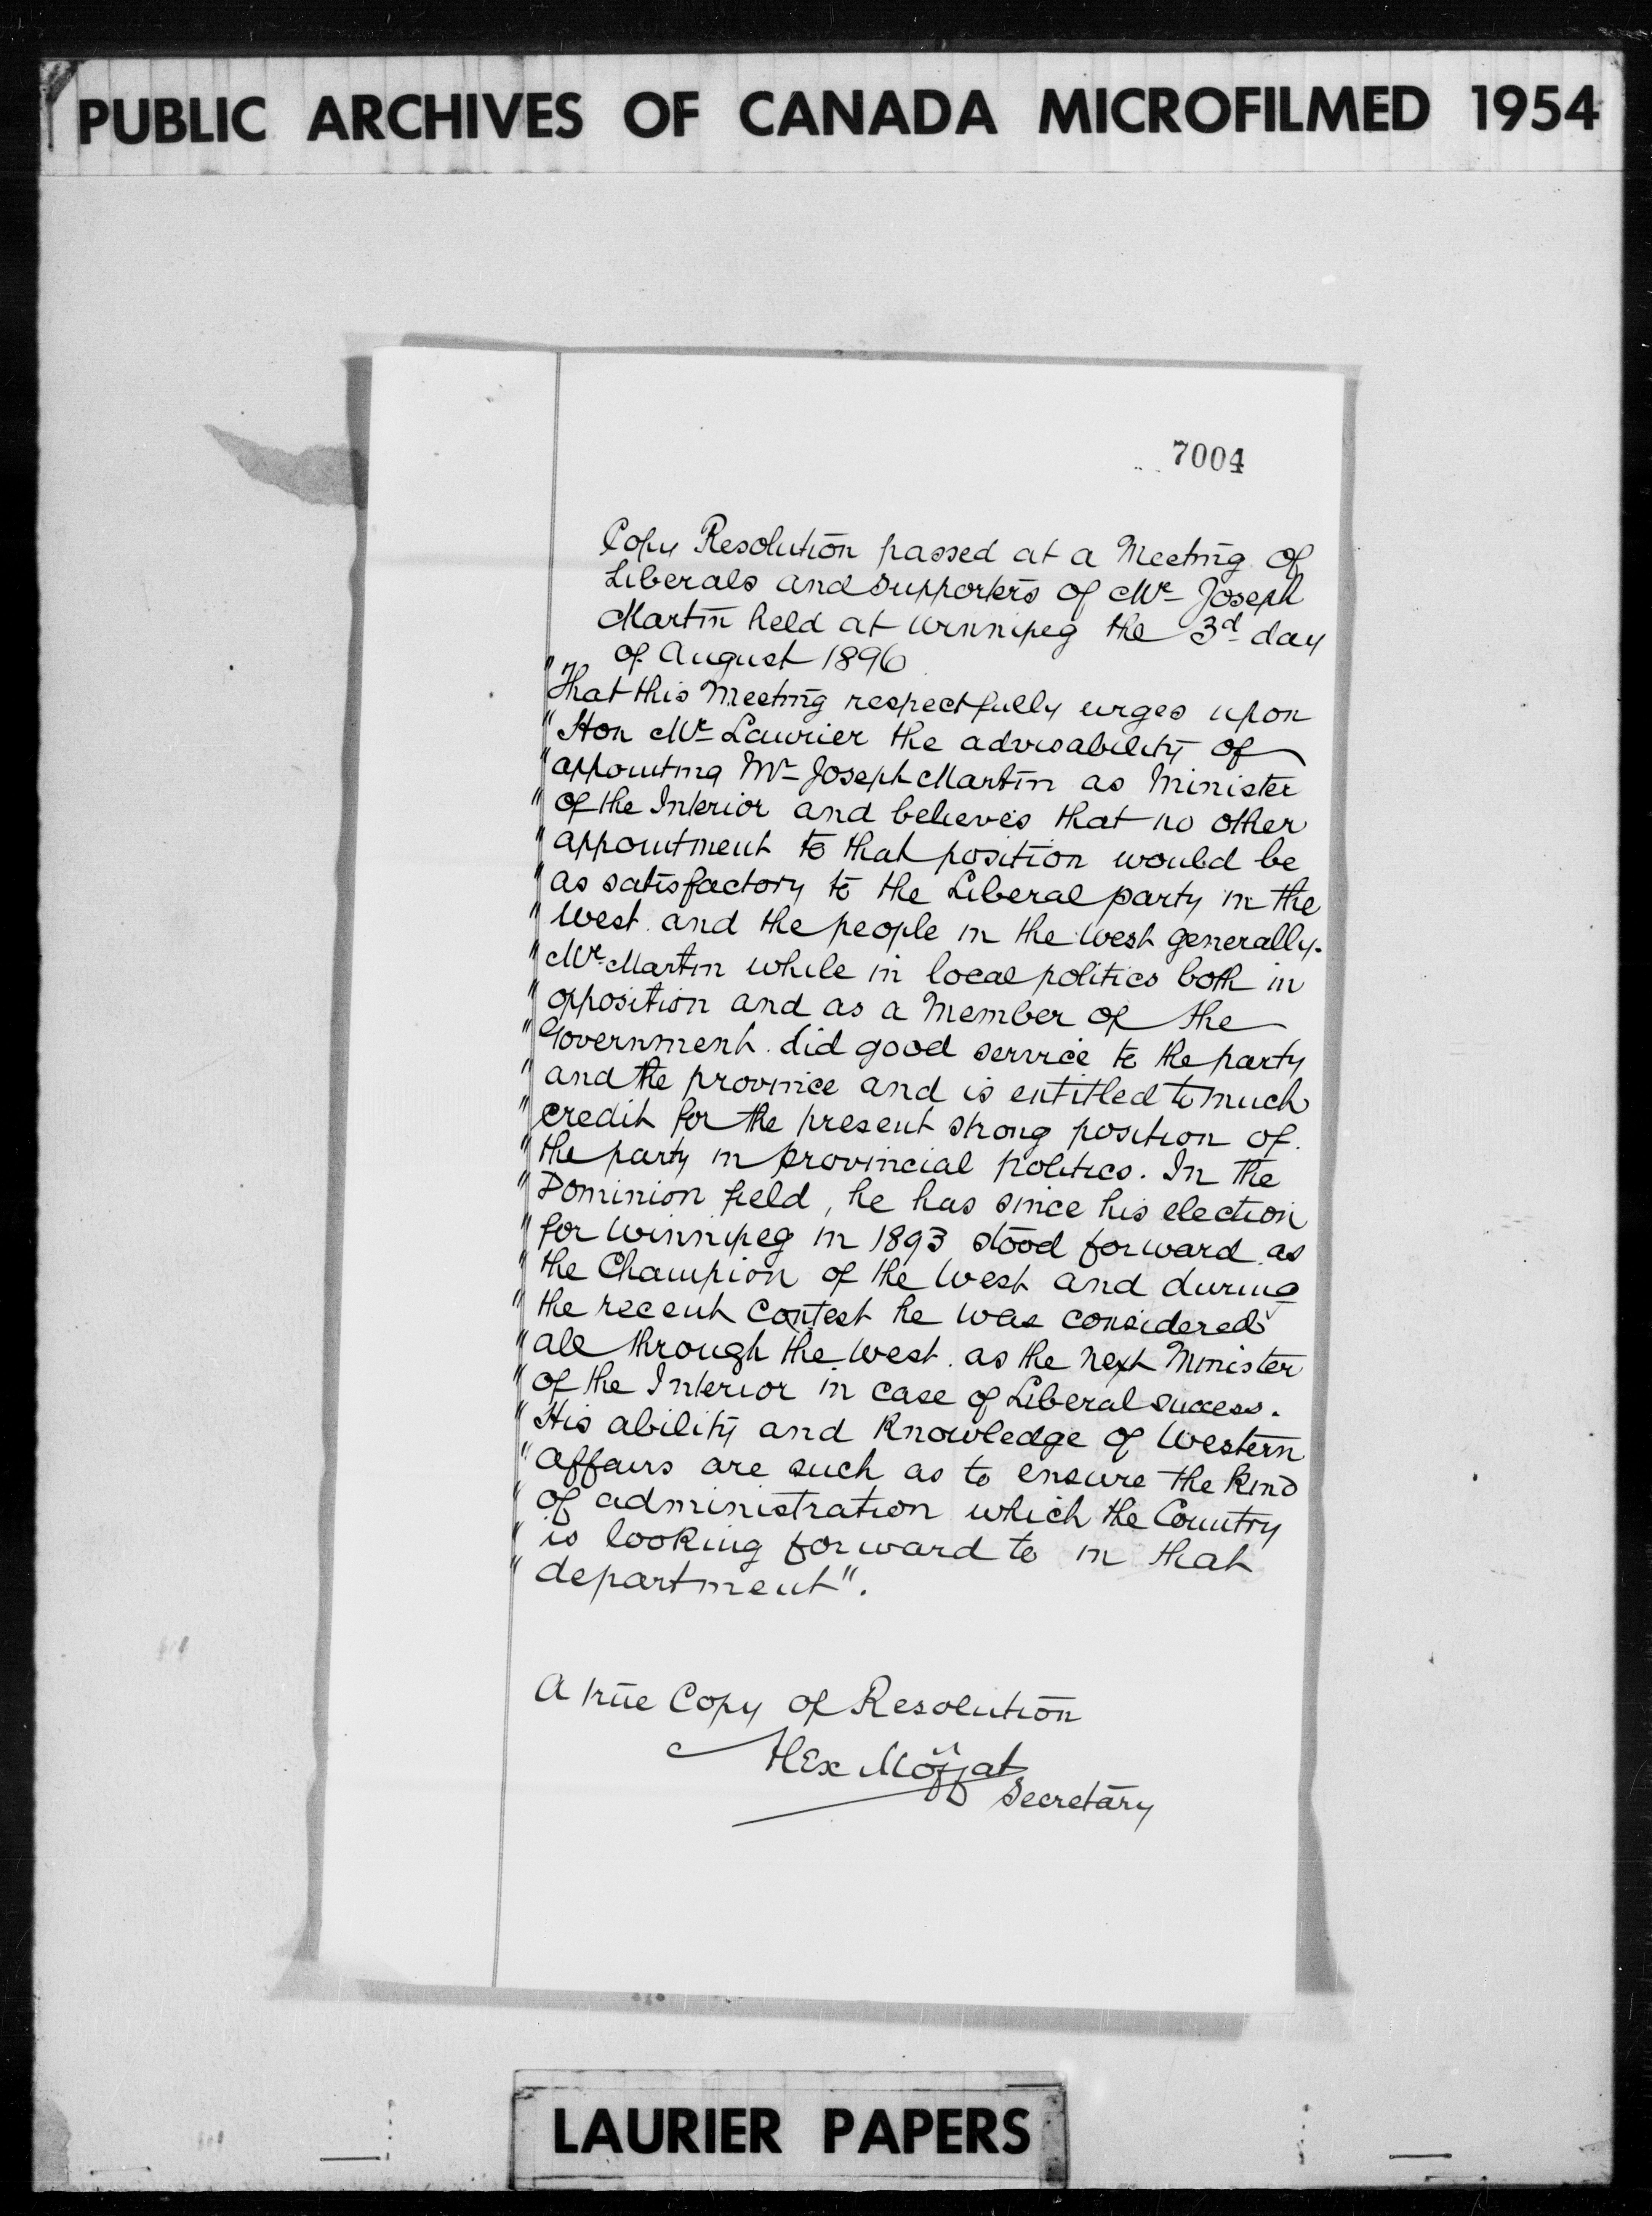 PUBLIC ARCHIVES OF CANADA MICROFILMED 1954
7004
Copy Resolution passed at a Meeting of
Liberals and supporters of Mr Joseph
Martin held at Winnipeg the 3d day
of August 1896
"That this Meeting respectfully urges upon
"Hon Mr Laurier the advisability of
"appointing Mr Joseph Martin as Minister
"of the Interior and believes that no other
"appointment to that position would be
"as satisfactory to the Liberal party in the
"West and the people in the West generally.
"Mr Martin while in local politics both in
"opposition and as a Member of the
"Government did good service to the party
"and the province and is entitled to much
"credit for the present strong position of
"the party in provincial politics. In the
"Dominion field, he has since his election
"for Winnipeg in 1893 stood forward as
"the Champion of the West and during
"the recent contest he was considered
"all through the West as the next Minister
"of the Interior in case of Liberal success.
"His ability and Knowledge of Western
"Affairs are such as to ensure the Kind
"of administration which the Country
"is looking forward to in that
"department".
A true Copy of Resolution
Alex Moffat
Secretary
LAURIER PAPERS